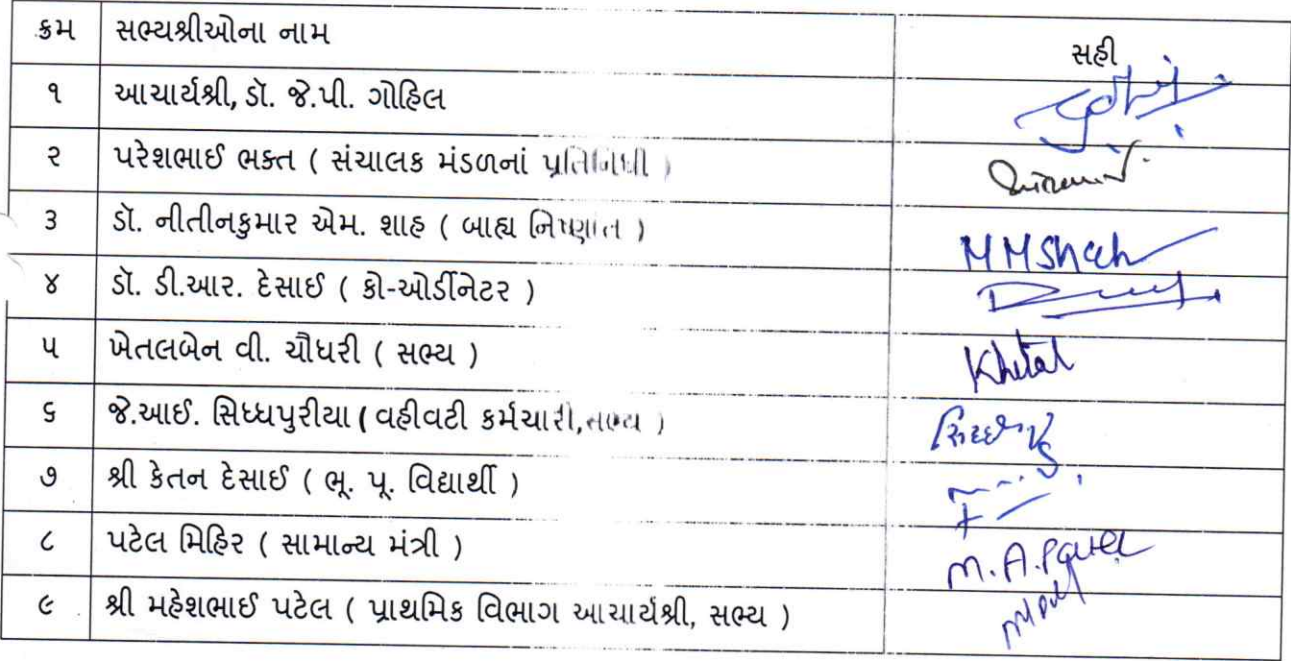 ક્રમ સભ્યશ્રીઓના નામ સહી
૧ આચાર્યશ્રી, ડૉ. જે.પી. ગોહિલ
૨ પરેશભાઈ ભક્ત ( સંચાલક મંડળનાં પ્રતિનિધી )
૩ ડૉ. નીતીનકુમાર એમ. શાહ ( બાહ્ય નિષ્ણાત ) MMShah
૪ ડૉ. ડી.આર. દેસાઈ ( કો-ઓર્ડીનેટર )
૫ ખેતલબેન વી. ચૌધરી ( સભ્ય ) Khetal
૬ જે.આઈ. સિધ્ધપુરીયા ( વહીવટી કર્મચારી, સભ્ય )
૭ શ્રી કેતન દેસાઈ ( ભૂ. પૂ. વિદ્યાર્થી )
૮ પટેલ મિહિર ( સામાન્ય મંત્રી ) M.A.Patel
૯ શ્રી મહેશભાઈ પટેલ ( પ્રાથમિક વિભાગ આચાર્યશ્રી, સભ્ય )